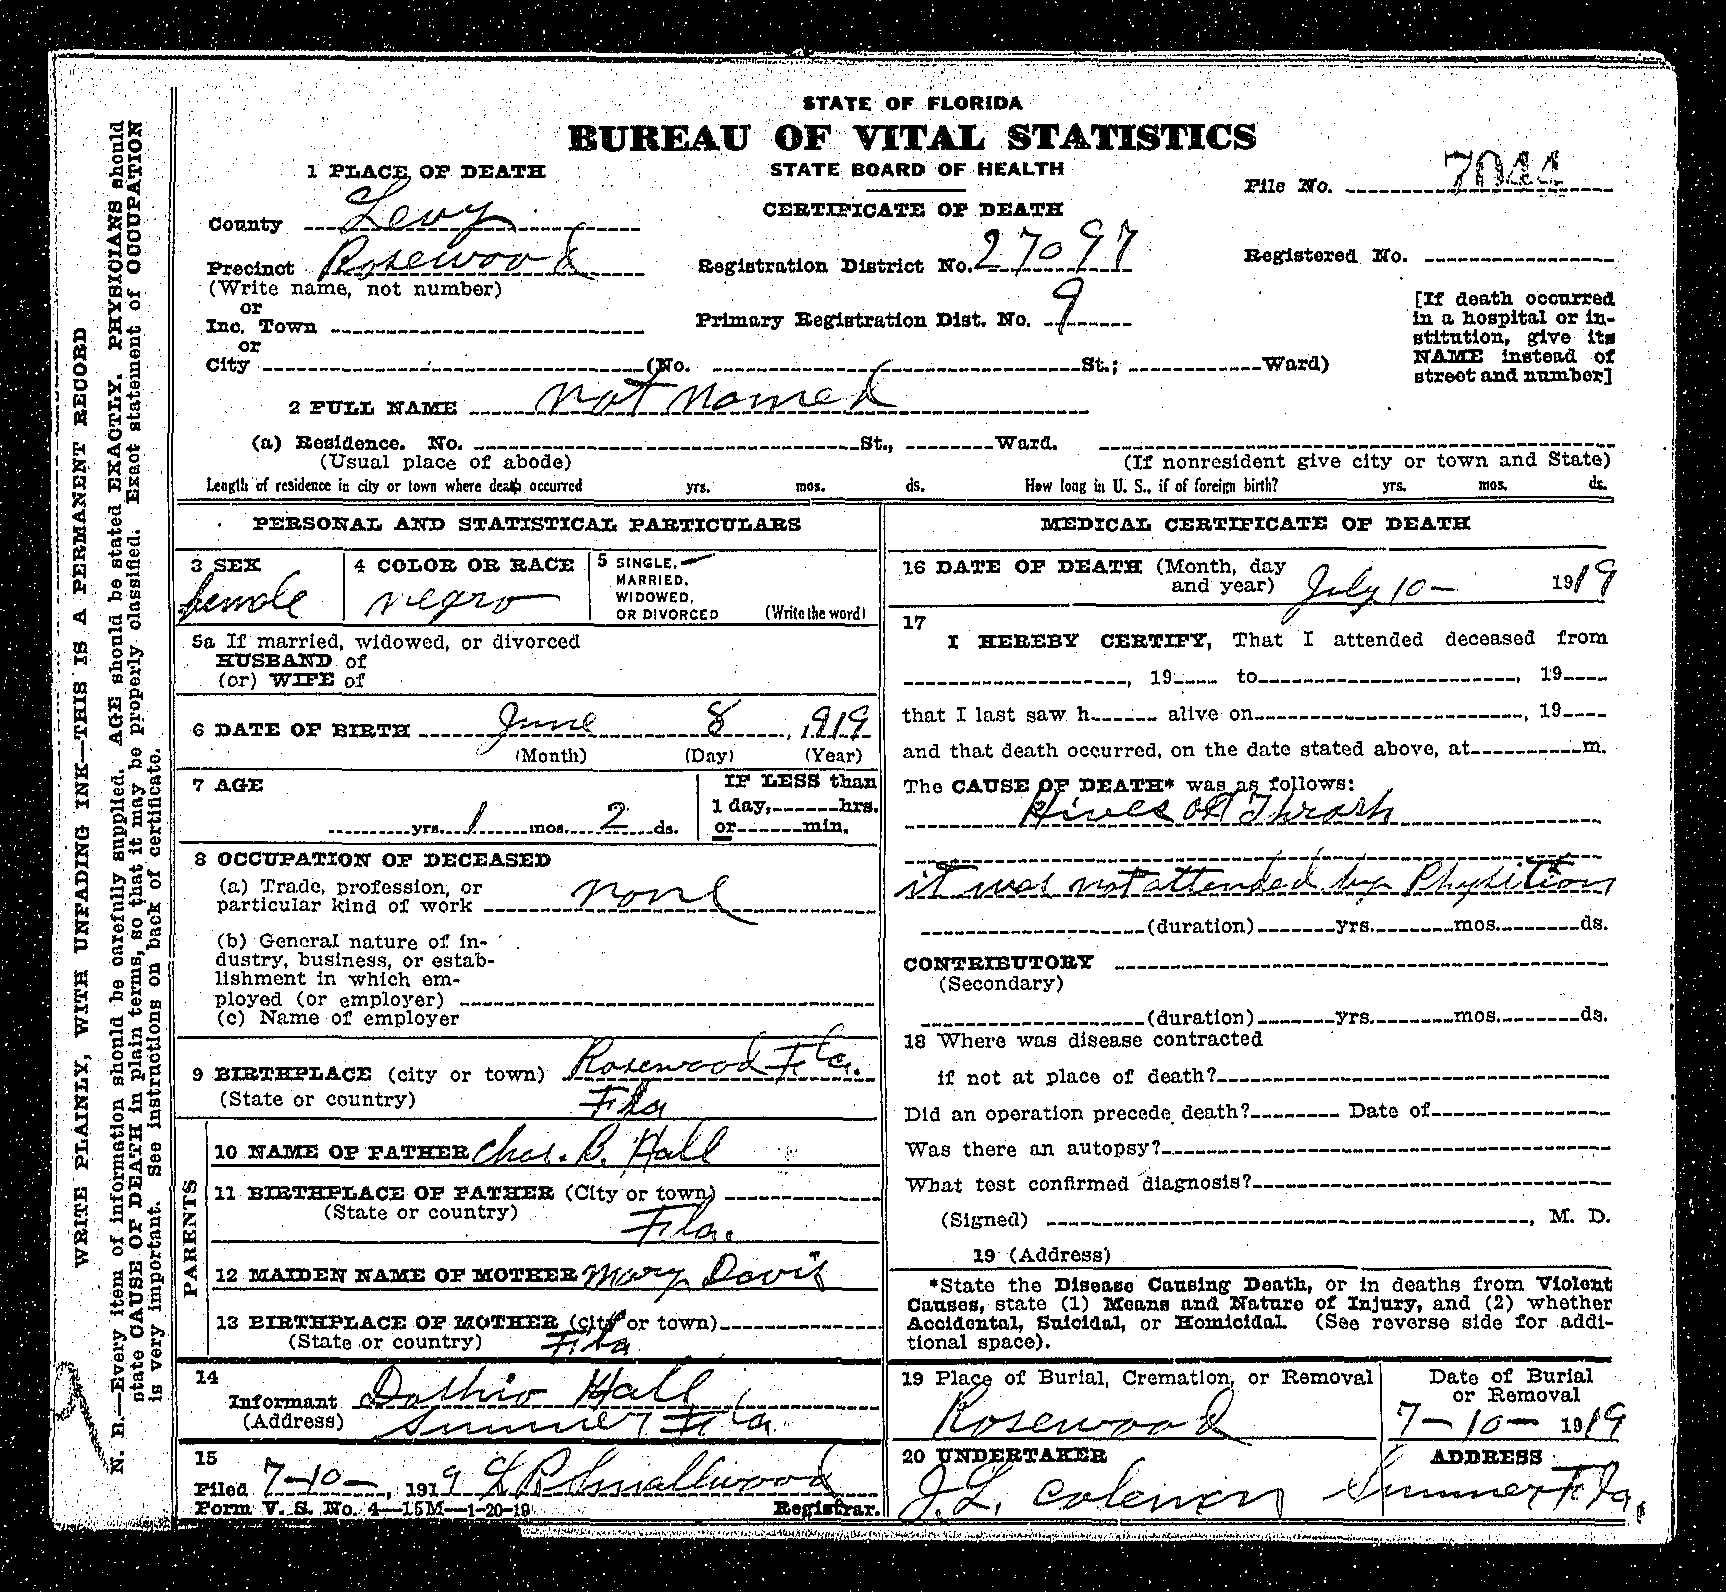 STATE OF FLORIDA
BUREAU OF VITAL STATISTICS
STATE BOARD OF HEALTH
CERTIFICATE OF DEATH
File No. 7044
1 PLACE OF DEATH
County Levy
Precinct Rosewood
(Write name, not number)
or
Inc. Town
or
City (No. St.; Ward)
Registration District No. 27097
Primary Registration Dist. No. 9
Registered No.
[If death occurred
in a hospital or in-
stitution, give its
NAME instead of
street and number]
2 FULL NAME not named
(a) Residence. No. St., Ward.
(Usual place of abode) (If nonresident give city or town and State)
Length of residence in city or town where death occurred yrs. mos. ds. How long in U. S., if of foreign birth? yrs. mos. ds.
PERSONAL AND STATISTICAL PARTICULARS
3 SEX
female
4 COLOR OR RACE
negro
5 SINGLE,
MARRIED,
WIDOWED,
OR DIVORCED (Write the word)
5a If married, widowed, or divorced
HUSBAND of
(or) WIFE of
6 DATE OF BIRTH June 8, 1919
(Month) (Day) (Year)
7 AGE
yrs. 1 mos. 2 ds.
IF LESS than
1 day, hrs.
or min.
8 OCCUPATION OF DECEASED
(a) Trade, profession, or
particular kind of work none
(b) General nature of in-
dustry, business, or estab-
lishment in which em-
ployed (or employer)
(c) Name of employer
9 BIRTHPLACE (city or town) Rosewood Fla.
(State or country) Fla
PARENTS
10 NAME OF FATHER Chas. B. Hall
11 BIRTHPLACE OF FATHER (City or town)
(State or country) Fla.
12 MAIDEN NAME OF MOTHER Mary Davis
13 BIRTHPLACE OF MOTHER (city or town)
(State or country) Fla
14
Informant Hall
(Address) Sumner Fla
15
Filed 7-10-, 1919 L R Smallwood
Form V. S. No. 4—15M—1-20-19 Registrar.
MEDICAL CERTIFICATE OF DEATH
16 DATE OF DEATH (Month, day
and year) July 10- 1919
17
I HEREBY CERTIFY, That I attended deceased from
, 19 to , 19
that I last saw h alive on , 19
and that death occurred, on the date stated above, at m.
The CAUSE OF DEATH* was as follows:
Hives or Thrash
it was not attended by Physition
(duration) yrs. mos. ds.
CONTRIBUTORY
(Secondary)
(duration) yrs. mos. ds.
18 Where was disease contracted
if not at place of death?
Did an operation precede death? Date of
Was there an autopsy?
What test confirmed diagnosis?
(Signed) , M. D.
19 (Address)
*State the Disease Causing Death, or in deaths from Violent
Causes, state (1) Means and Nature of Injury, and (2) whether
Accidental, Suicidal, or Homicidal. (See reverse side for addi-
tional space).
19 Place of Burial, Cremation, or Removal
Rosewood
Date of Burial
or Removal
7-10- 1919
20 UNDERTAKER
J. L. Colemon
ADDRESS
Sumner Fla.
WRITE PLAINLY, WITH UNFADING INK—THIS IS A PERMANENT RECORD
N. B.—Every item of information should be carefully supplied. AGE should be stated EXACTLY. PHYSICIANS should
state CAUSE OF DEATH in plain terms, so that it may be properly classified. Exact statement of OCCUPATION
is very important. See instructions on back of certificate.